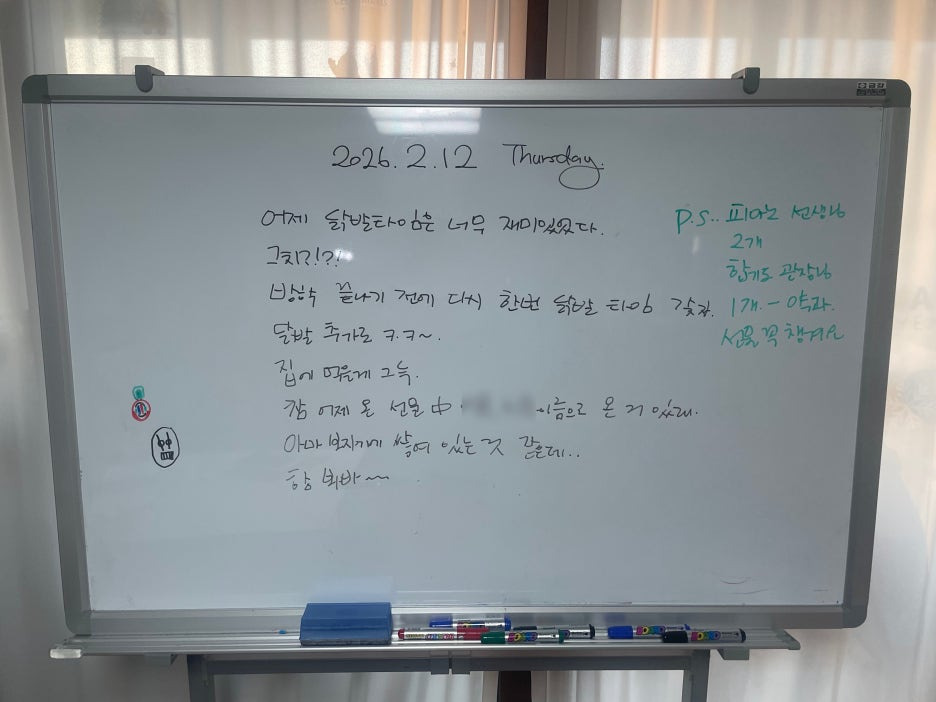 2026.2.12 Thursday.
어제 닭발타임은 너무 재미있었다.
그치?!?!
방학 끝나기 전에 다시 한번 닭발 타임 갖자.
닭발 추가로 ㅋ.ㅋ~.
집에 먹을게 그득.
참 어제 온 선물 中 이름으로 온 거 있대.
아마 보자기에 쌓여 있는 것 같은데..
함 봐바~~
P.S.. 피아노 선생님
2개
합기도 관장님
1개. - 약과.
선물 꼭 챙겨요